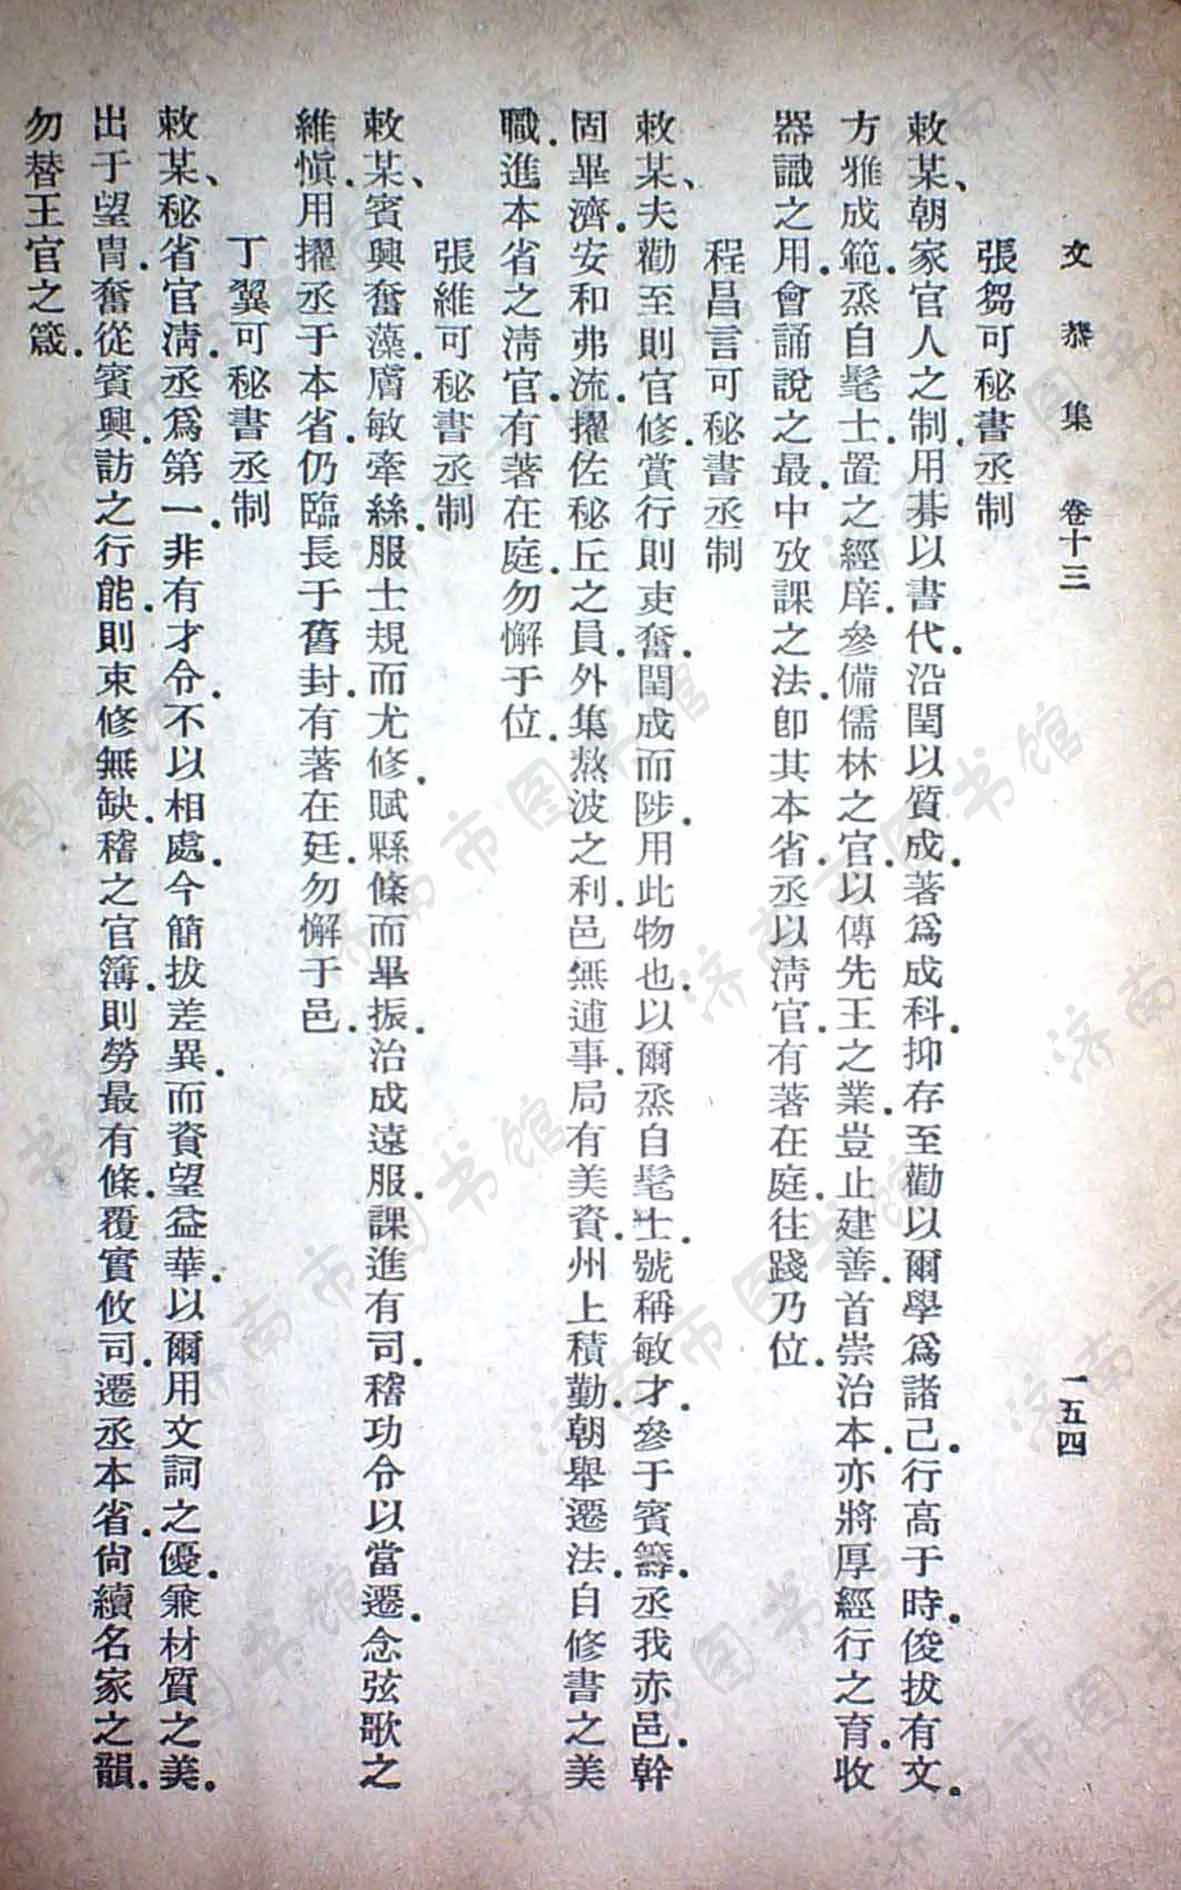 文恭集 卷十三 一五四
張芻可秘書丞制
敕某、朝家官人之制.用朞以書代.沿閏以質成.著爲成科.抑存至勸以爾學爲諸己.行高于時.俊拔有文.
方雅成範.烝自髦士.置之經庠.參備儒林之官.以傳先王之業.豈止建善.首崇治本.亦將厚經行之育.收
器識之用.會誦說之最.中攷課之法.卽其本省.丞以淸官.有著在庭.往踐乃位.
程昌言可秘書丞制
敕某、夫勸至則官修.賞行則吏奮.閏成而陟.用此物也.以爾烝自髦士.號稱敏才.參于賓籌.丞我赤邑.幹
固畢濟.安和弗流.擢佐秘丘之員.外集熬波之利.邑無逋事.局有美資.州上積勤.朝舉遷法.自修書之美
職.進本省之淸官.有著在庭.勿懈于位.
張維可秘書丞制
敕某、賓興奮藻.膚敏牽絲.服士規而尤修.賦縣條而畢振.治成遠服.課進有司.稽功令以當遷.念弦歌之
維愼.用擢丞于本省.仍臨長于舊封.有著在廷.勿懈于邑.
丁翼可秘書丞制
敕某、秘省官淸.丞爲第一.非有才令.不以相處.今簡拔差異.而資望益華.以爾用文詞之優.兼材質之美.
出于望冑.奮從賓興.訪之行能.則束修無缺.稽之官簿.則勞最有條.覆實攸司.遷丞本省.尙續名家之韻.
勿替王官之箴.